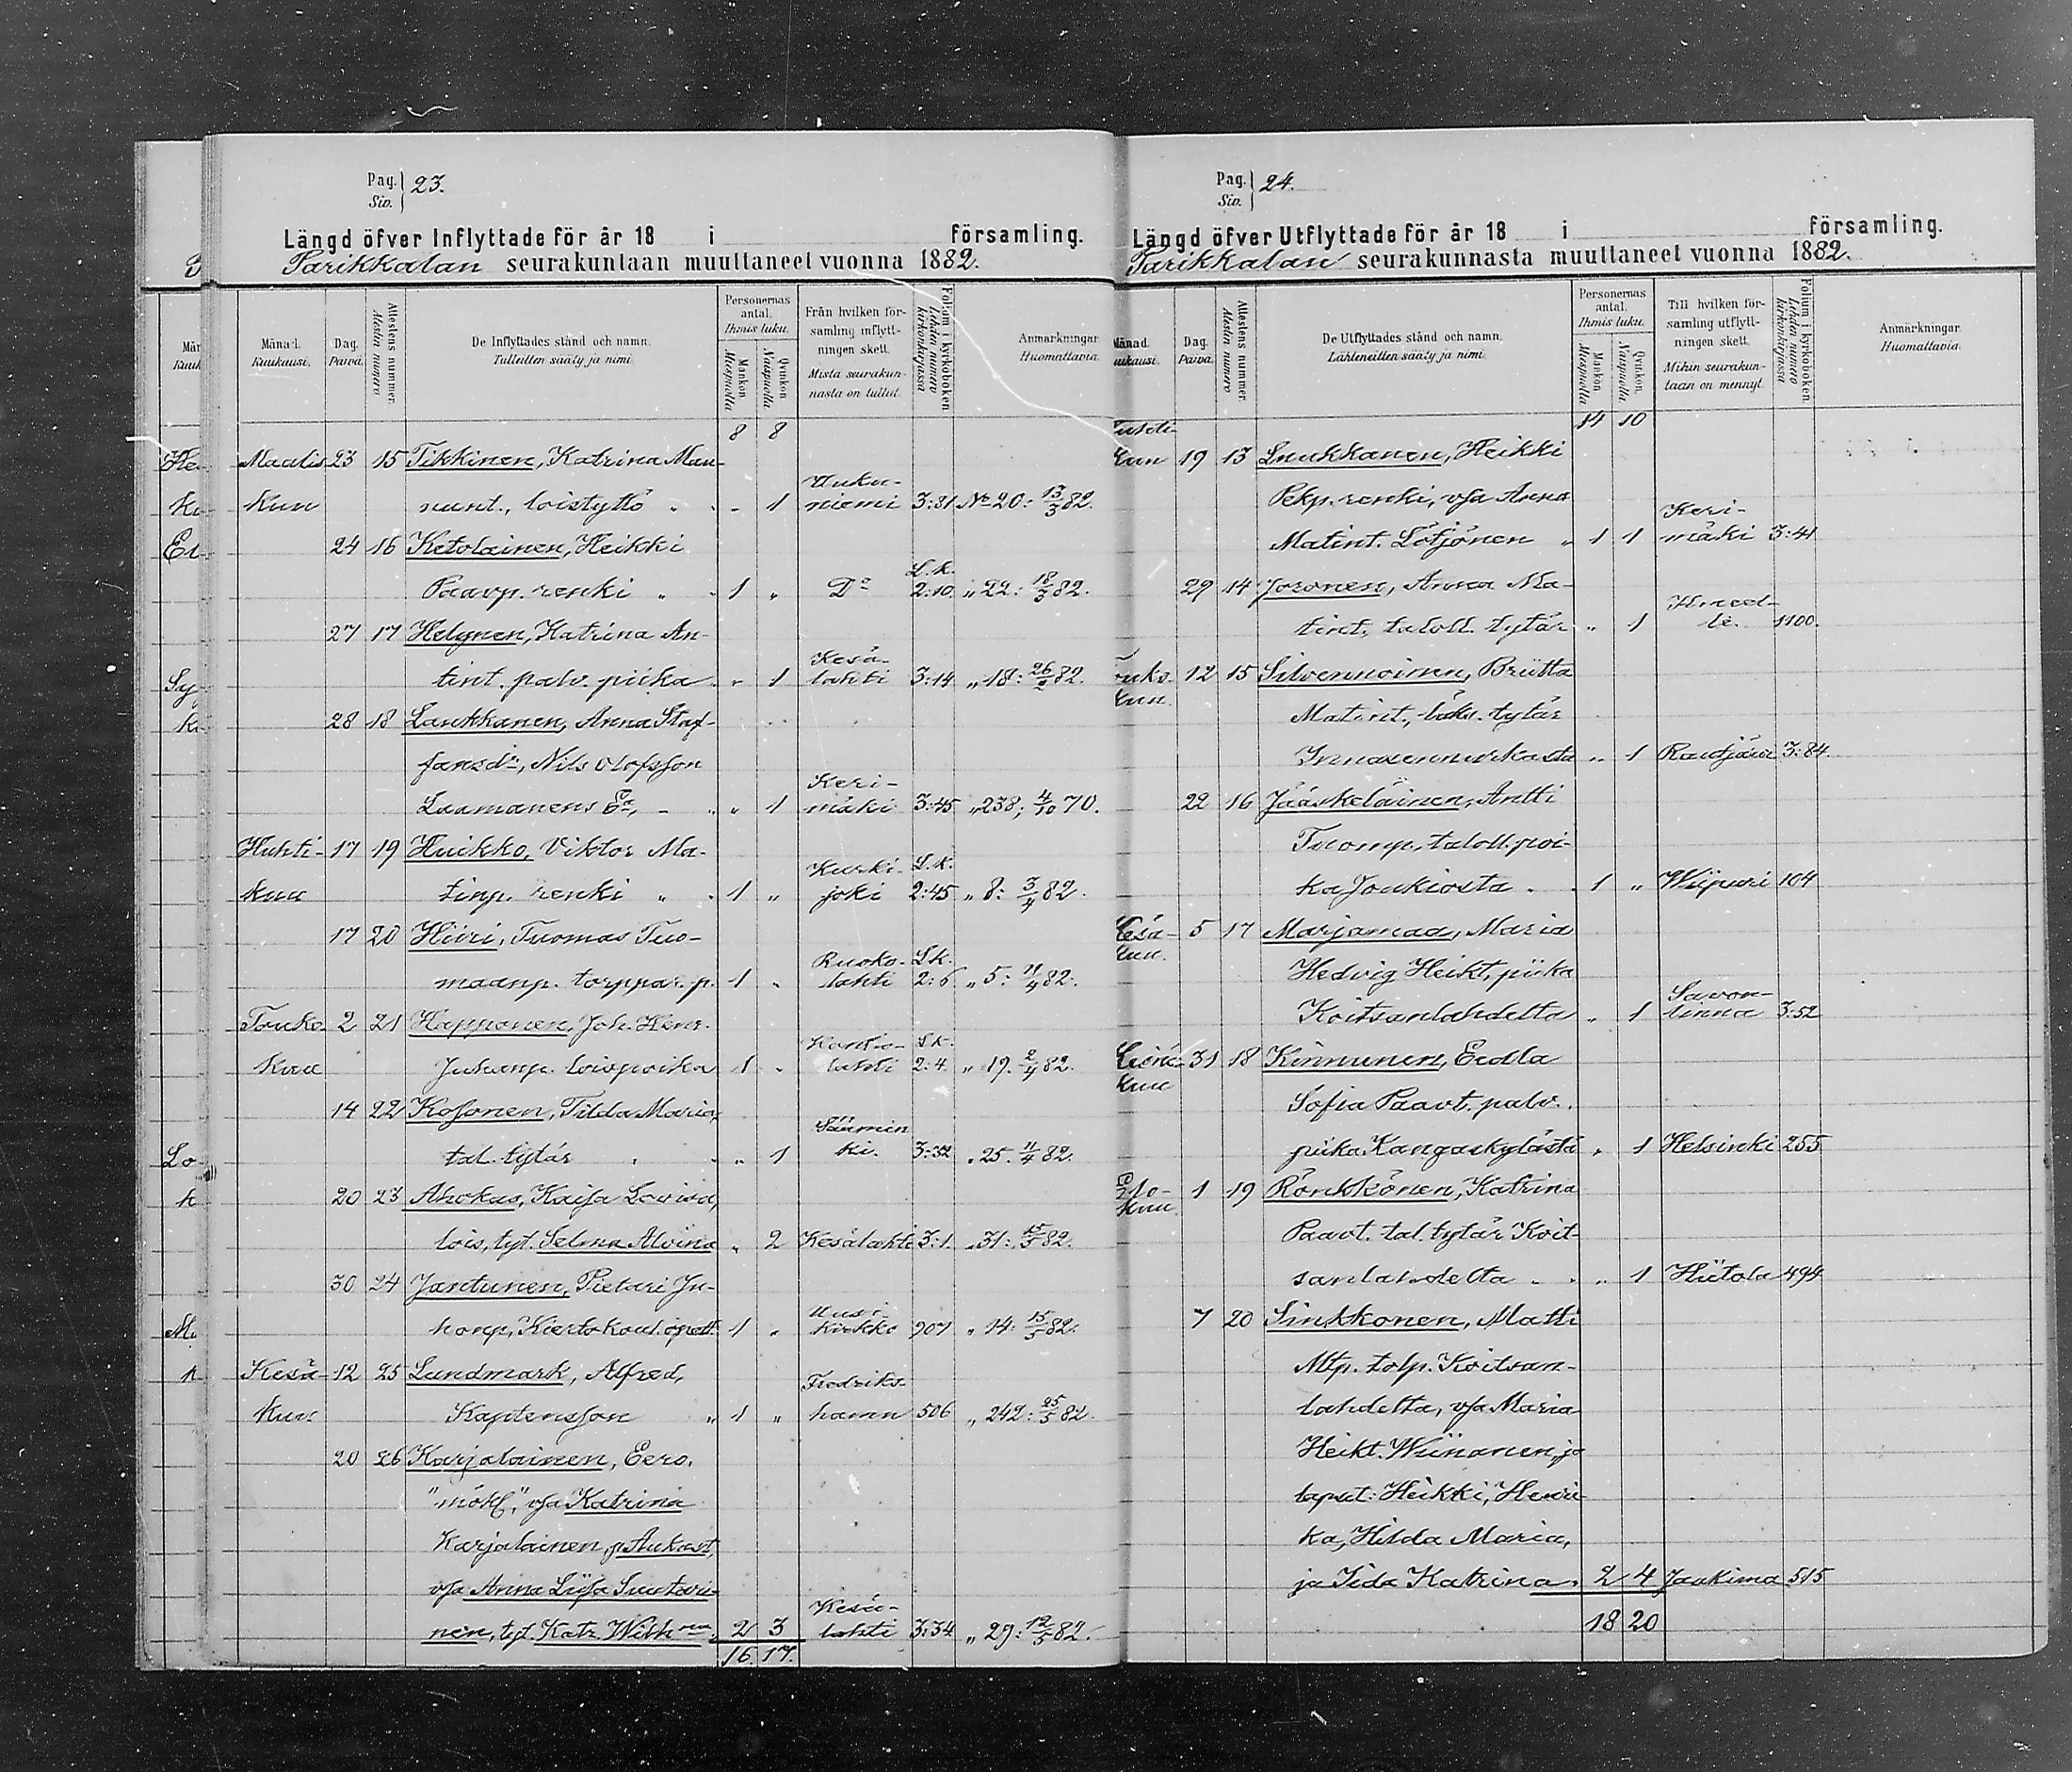 Pag.
Siv. 23.
Längd öfver Inflyttade för år 18 i församling.
Parikkalan seurakuntaan muuttaneet vuonna 1882.
Månad. Kuukausi.
Dag. Päivä.
Attestens nummer. Atestin numero
De Inflyttades stånd och namn.
Tulleitten sääty ja nimi.
Personernas antal. Ihmis luku.
Mankön Miespuolia
Qvinkön. Naispuolia
Från hvilken församling inflyttningen skett.
Mistä seurakunnasta on tullut.
Folium i kyrkoboken. Lehden numero kirkonkirjassa
Anmärkningar. Huomattavia.
8 8
Maalis 23 15 Tikkinen, Katrina Mau-
kuu nunt., loistyttö " - 1 Uukuniemi 3:81 No 20: 13/3 82.
24 16 Ketolainen, Heikki
Paavp. renki " 1 " Do L.k. 2:10. " 22: 18/3 82.
27 17 Helynen, Katrina An-
tint. palv. piika " 1 Kesälahti 3:14 " 18: 26/2 82.
28 18 Laukkanen, Anna Staf-
fansdr, Nils Olofsson
Laamanens Ea, - " 1 Kerimäki 3:45 " 238; 4/10 70.
Huhti- 17 19 Huikko, Viktor Ma-
kuu tinp. renki " 1 " Kurkijoki L.k. 2:45 " 8: 3/4 82.
17 20 Hiiri, Tuomas Tuo-
maanp. torppar. p. 1 " Ruokolahti L.k. 2:6 " 5: 11/4 82.
Touko- 2 21 Happonen, Joh. Henr.
kuu Juhanp. loispoika 1 " Kontiolahti L.k. 2:4. " 19. 2/4 82.
14 22 Kosonen, Tilda Maria,
tal. tytär " 1 Sääminki. 3:32 " 25. 11/4 82.
20 23 Ahokas, Kaisa Lovisa,
lois, tyt. Selma Alvina " 2 Kesälahti 3:1. " 31: 15/5 82.
30 24 Jantunen, Pietari Ju-
honp, Kiertokoul. opett. 1 " Uusikirkko 907 " 14: 15/5 82.
Kesä- 12 25 Lundmark, Alfred,
kuu Kaptensson " 1 " Fredrikshamn 506 " 242: 25/5 82.
20 26 Karjalainen, Eero,
"mökl", vsa Katrina
Karjalainen, p. Aukust,
vsa Anna Liisa Suutari-
nen, tyt. Katr. Wilh. 2 3 Kesälahti 3:34 " 29: 12/5 82.
16. 17.
Pag.
Siv. 24.
Längd öfver Utflyttade för år 18 i församling.
Parikkalan seurakunnasta muuttaneet vuonna 1882.
Månad. Kuukausi.
Dag. Päivä.
Attestens nummer. Atestin numero
De Utflyttades stånd och namn.
Lähteneitten sääty ja nimi.
Personernas antal. Ihmis luku.
Mankön Miespuolia
Qvinkön. Naispuolia
Till hvilken församling utflyttningen skett.
Mihin seurakuntaan on mennyt.
Folium i kyrkoboken. Lehden numero kirkonkirjassa
Anmärkningar. Huomattavia.
14 10
Huhti-
kuu 19 13 Luukkanen, Heikki
Pekp. renki, vsa Anna
Matint. Lötjönen " 1 1 Kerimäki 3:41
29 14 Joronen, Anna Ma-
tint, taloll. tytär " 1 1100.
Touko- 12 15 Silvennoinen, Briitta
kuu Matint., tytär
" 1 Rautjärvi 3:84.
22 16 Jääskeläinen, Antti
Tuomp., taloll. poi-
ka Joukiosta. 1 " Wiipuri 104
Kesä- 5 17 Marjamaa, Maria
kuu. Hedvig Heikt, piika
Koitsanlahdelta " 1 Savonlinna 3:52
Heinä- 31 18 Kinnunen, Eedla
kuu Sofia Paavt. palv.
piika Kangaskylästä " 1 Helsinki 255
Elo- 1 19 Rönkkönen, Katrina
kuu. Paavt. tal. tytär Koit-
sanlahdelta " 1 Hiitola 494
7 20 Sinkkonen, Matti
Mtp. tolp. Koitsan-
lahdelta, vsa Maria
Heikt. Wiinanen, ja
lapset: Heikki, Henri-
ka, Hilda Maria,
ja Iida Katrina. 2 4 Jaakima 515
18 20